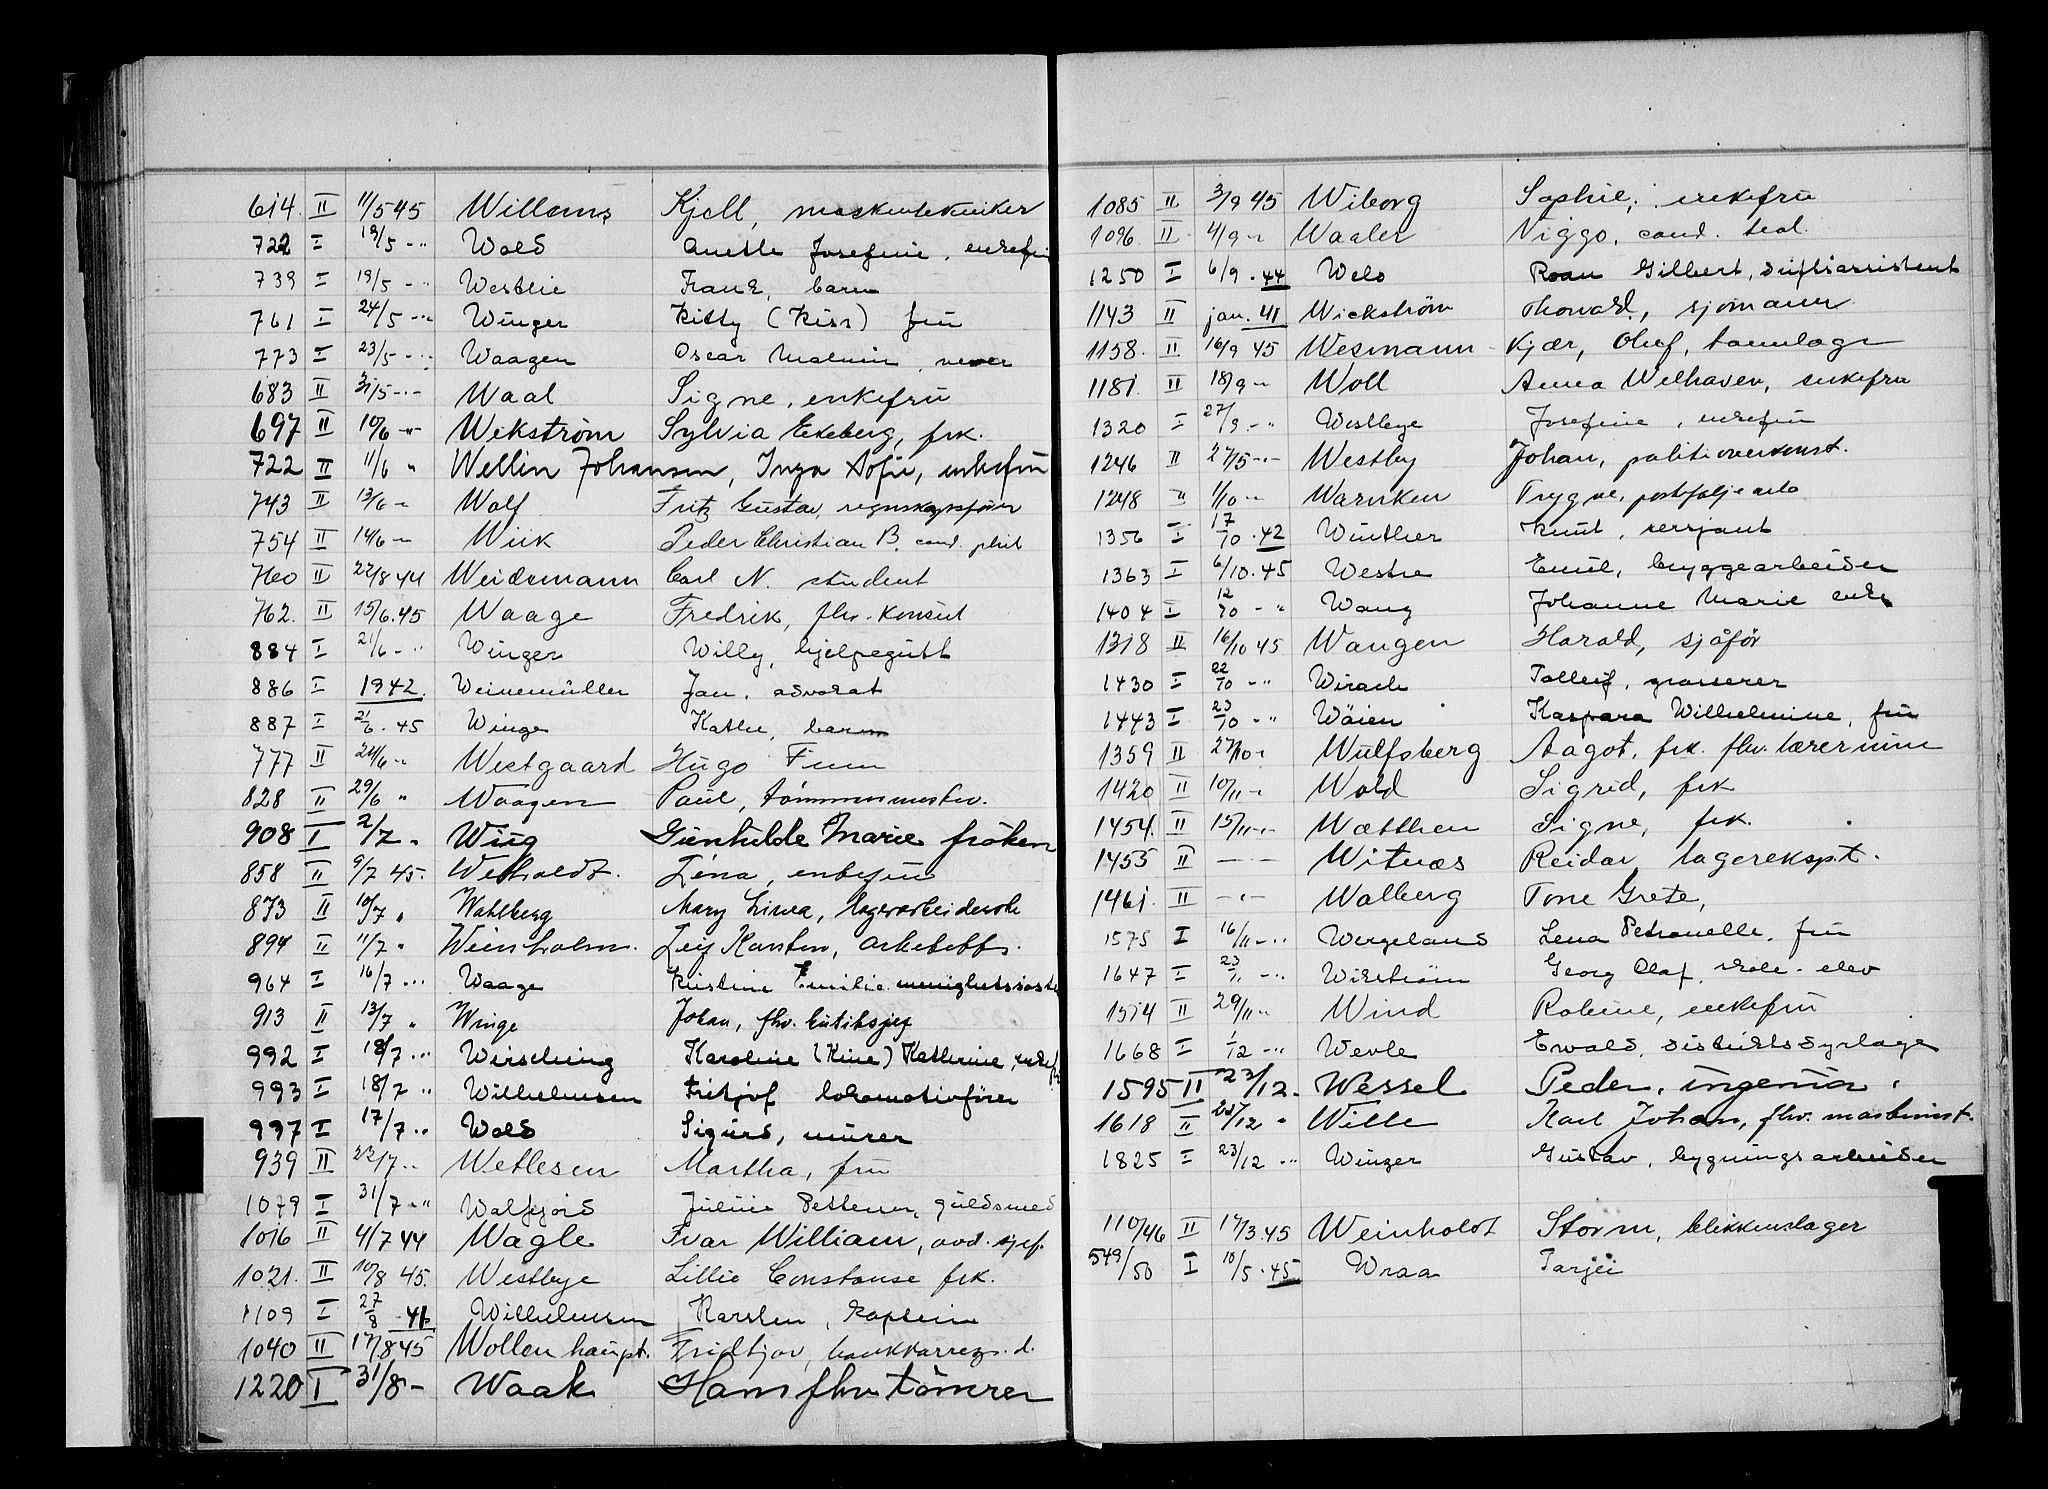 614. II 11/5 45 Willems Kjell, maskintekniker
722 I 19/5 -"- Wold Anette Josefine, enkefru
739 I 19/5 -"- Westlie Frank, barn
761 I 24/5 -"- Winger Kitty (Kiss) fru
773 I 23/5 -"- Waagen Oscar
683 II 31/5 -"- Waal Signe, enkefru
697 II 10/6 -"- Wekström Sylvia Ekeberg, frk.
722 II 11/6 " Wellin Johansen, Inga Sofie, enkefru
743 II 13/6 -"- Wolf Fritz Gustav, regnskapsfører
754 II 14/6 -"- Wiik Peder Christian B. cand. phil
760 II 22/8 44 Weidemann Carl N. student
762. II 15/6. 45 Waage Fredrik, fhv. konsul
884 I 21/6 -"- Winger Willy, hjelpegutt
886 I 1942. Weinemüller Jan, advokat
887 I 21/6. 45 Winge Kathe, barn
777 II 24/6 -"- Westgaard Hugo Finn
828 II 29/6 " Waagen Paul, tømmermester.
908 I 2/7 " Wiig Gunhilde Marie frøken
858 II 9/7 45. Weiholdt. Lina, enkefru
873 II 10/7 " Wahlberg Mary Linea, lagerarbeiderske
894 II 11/7 " Weinholm. Leif Karsten, arkebobbs.
964 I 16/7 -"- Waage Kristine Emilie menighetssøster
913 II 13/7 " Winge Johan, fhv. butiksjef
992 I 18/7 -"- Wirsching Karoline (Kine) Kathrine, enkefr
993 I 18/7 " Wilhelmsen Fritjof lokomotivfører
997 I 17/7 " Wold Sigurd, murer
939 II 22/7 -"- Wetlesen Martha, fru
1079 I 31/7 -"- Walfjord Julius Pettersen, guldsmed
1016 II 4/7 44 Wagle Ivar William, avd. sjef.
1021. II 10/8 45. Westbye Lillie Constanse frk.
1109 I 27/8 .41 Wilhelmsen Karsten, kaptein
1040 II 17/8 45 Wollenhaupt. Fridtjov,
1220 I 31/8 - Waak Hans fhv tømrer
1085 II 3/9 45 Wiborg Sophie, enkefru
1096 II 4/9 -"- Waaler Viggo, cand. teol.
1250 I 6/9. 44 Welo Roan Gilbert, driftsassistent
1143 II jan. 41 Wickström Thorvald, sjömann
1158. II 16/9 45 Wesmann Kjær, Oluf, tannlæge
1181 II 18/9 -"- Woll Anna Welhaven, enkefru
1320 I 27/9 -"- Westbye Josefine, enkefru
1246 II 27/5 -"- Westby Johan, politioverkonst.
1248 " 1/10 -"- Warnken Trygve,
1356 I 17/10. 42 Winther Knut, sersjant
1363 I 6/10. 45 Westre Emil, bryggearbeider
1404 I 12/10 -" Wang Johanne Marie enke
1318 II 16/10 45 Wangen Harald, sjåför
1430 I 22/10 -" Wirach Tolleif, grosserer
1443 I 23/10 -" Wöien Kaspara Wilhelmine, fru
1359 II 27/10 -"- Wulfsberg Aagot, frk. fhv. lærerinne
1420 II 10/11 -"- Wold Sigrid, frk
1454. II 15/11 -"- Watthen Signe, frk.
1455 II -"- Witnæs Reidar lagerekspt.
1461. II -"- Walberg Tone Grete,
1575 I 16/11 -"- Wergeland Lena Petronelle, fru
1647 I 23/11 -"- Wikström Georg Olaf, skole-elev
1514 II 29/11 -"- Wind Roline, enkefru
1668 I 1/12 -" Wevle Ewald, distriktsdyrlæge
1595 II 23/12. Wessel Peder, ingeniør.
1618 II 23/12 " Wille Karl Johan, fhv. maskinist.
1825 I 23/12 -" Winger Gustav, bygningsarbeider
110/46 II 17/3. 45 Weinholdt Storm, blikkenslager
549/50 I 10/5. 45 Wraa Tarjei